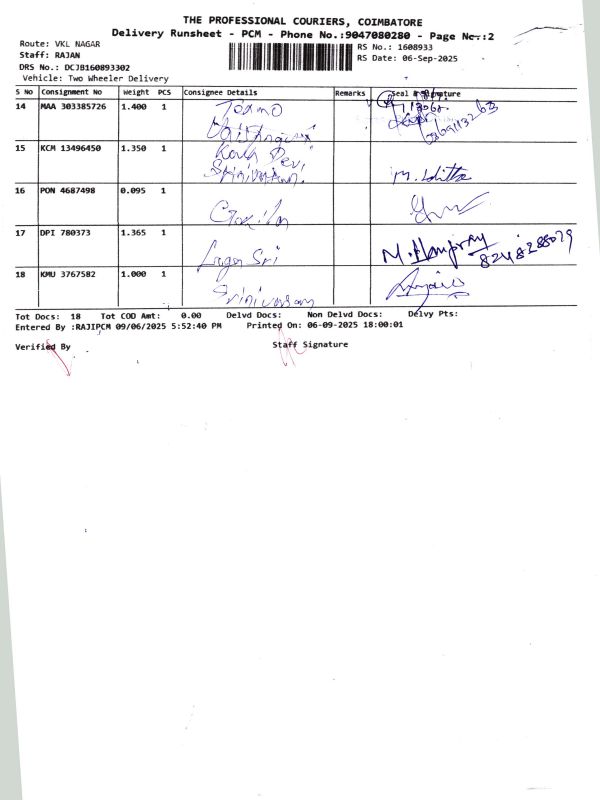 THE PROFESSIONAL COURIERS, COIMBATORE
Delivery Runsheet - PCM - Phone No.:9047080280 - Page No.:2
Route: VKL NAGAR
RS No.: 1608933
Staff: RAJAN
RS Date: 06-Sep-2025
DRS No.: DCJB160893302
Vehicle: Two Wheeler Delivery
S No Consignment No Weight PCS Consignee Details Remarks Seal & Signature
14 MAA 303385726 1.400 1
15 KCM 13496450 1.350 1 Kala Devi
Srinivasan.
16 PON 4687498 0.095 1
17 DPI 780373 1.365 1 Sri
18 KMU 3767582 1.000 1 Srinivasan
Tot Docs: 18 Tot COD Amt: 0.00 Delvd Docs: Non Delvd Docs: Delvy Pts:
Entered By :RAJIPCM 09/06/2025 5:52:40 PM Printed On: 06-09-2025 18:00:01
Verified By Staff Signature